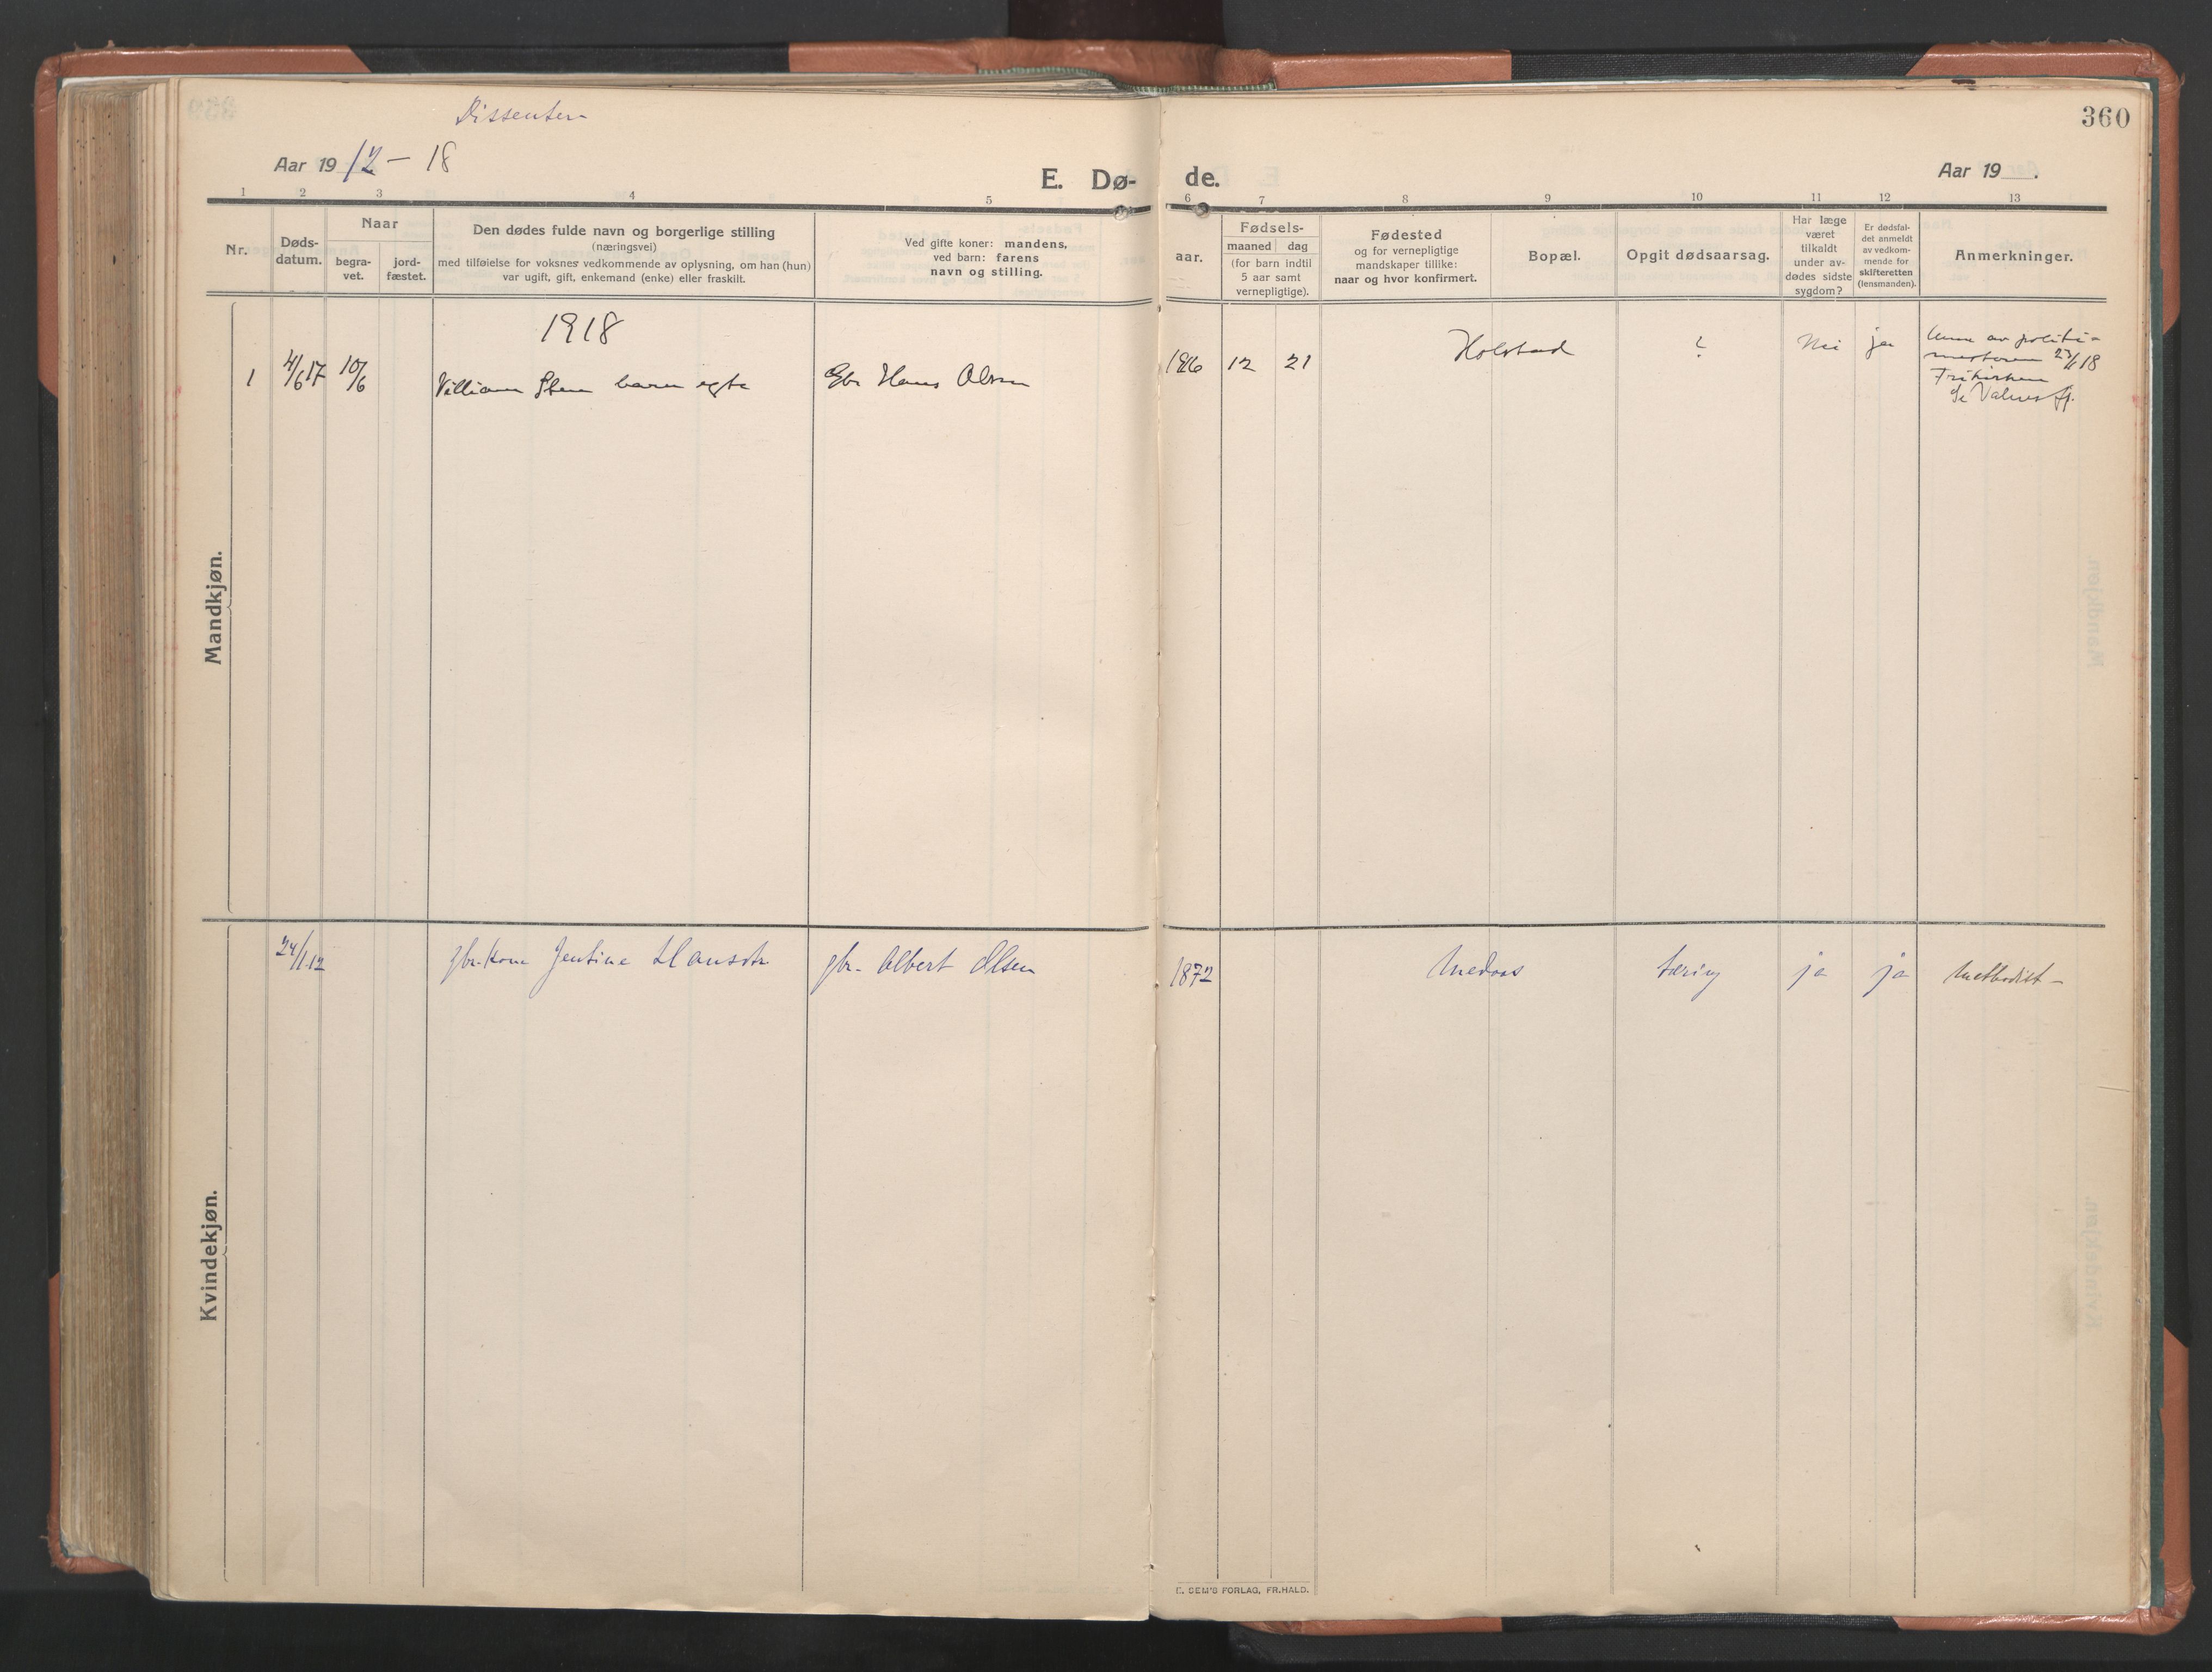 Dissenter
360
Aar 1912 - 18
E. Dø-
de.
Aar 19 .
1 2 3 4 5 6 7 8 9 10 11 12 13
Nr.
Døds-
datum.
Naar
begra-
vet.
jord-
fæstet.
Den dødes fulde navn og borgerlige stilling
(næringsvei)
med tilføielse for voksnes vedkommende av oplysning, om han (hun)
var ugift, gift, enkemand (enke) eller fraskilt.
Ved gifte koner: mandens,
ved barn: farens
navn og stilling.
aar.
Fødsels-
maaned dag
(for barn indtil
5 aar samt
vernepligtige).
Fødested
og for vernepligtige
mandskaper tillike:
naar og hvor konfirmert.
Bopæl.
Opgit dødsaarsag.
Har læge
været
tilkaldt
under av-
dødes sidste
sygdom?
Er dødsfal-
det anmeldt
av vedkom-
mende for
skifteretten
(lensmanden).
Anmerkninger.
Mandkjøn.
1918
1 4/6 17 10/6 Villiam barn egte Gbr Hans Olsen 1916 12 21 Holstad ? Nei ja
av politi-
mesteren 23/1 18
Frikirken
Valnesfj.
Kvindekjøn.
24/1.12 gbr.kone Jentine Hansdtr gbr. Albert Olsen 1872 Medaas tæring ja ja Methodist -
E. SEM'S FORLAG, FR.HALD.